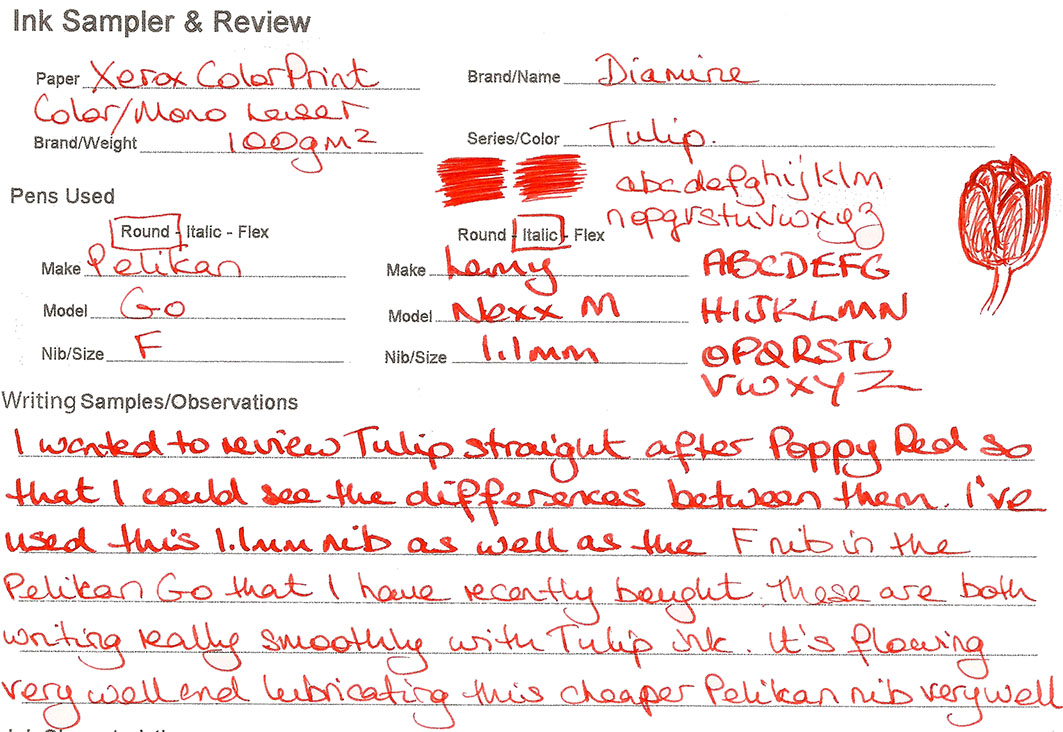 Ink Sampler & Review
Paper Xerox ColorPrint
Color/Mono Laser
Brand/Weight 100gm2
Brand/Name Diamine
Series/Color Tulip.
abcdefghijklm
nopqrstuvwxyz
Pens Used
Round - Italic - Flex
Make Pelikan
Model Go
Nib/Size F
Round - Italic - Flex
Make Lamy
Model Nexx M
Nib/Size 1.1mm
ABCDEFG
HIJKLMN
OPQRSTU
VWXYZ
Writing Samples/Observations
I wanted to review Tulip straight after Poppy Red so
that I could see the differences between them. I've
used this 1.1mm nib as well as the F nib in the
Pelikan Go that I have recently bought. These are both
writing really smoothly with Tulip ink. It's flowing
very well and lubricating this cheaper Pelikan nib very well